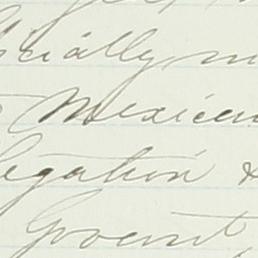 icially
Mexican
legation &
Governt